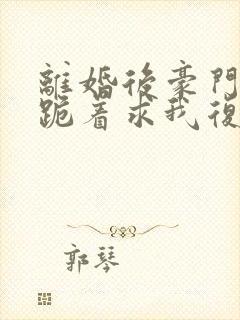 離婚後豪門
跪着求我復
郭琴